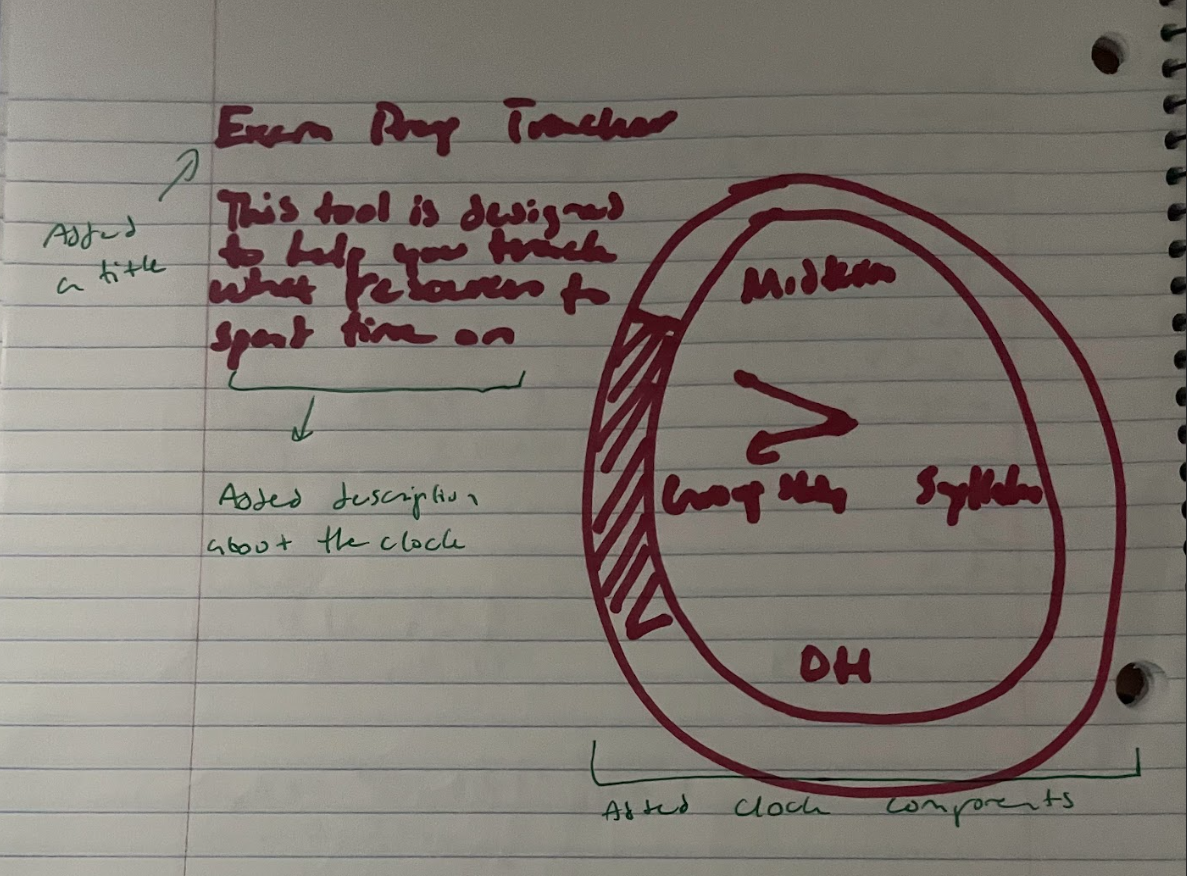 Exam Prep Tracker
This tool is designed
to help you track
what resources to
spent time on
Added
a title
Added description
about the clock
Midterm
Group Study
Syllabus
OH
Added clock components